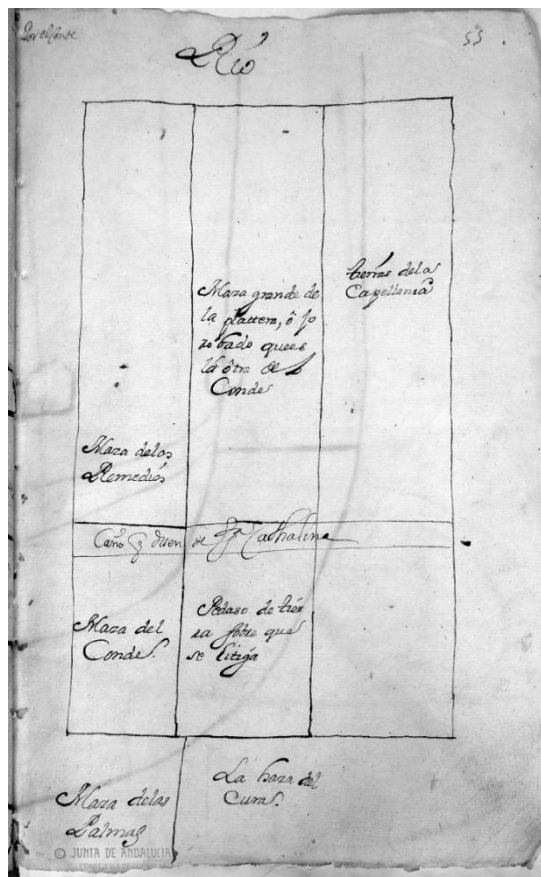 Por el Conde
55.
Río
tierras de la
Capellania
Haza grande de
la platera, ô po
zo bado que es
la ôtra de l
Conde
Haza de los
Remedios
Caño q dizen de Sta Cathalina
Haza del
Conde.
Pedaso de tier
ra sobre que
se litiga
La haza del
Cura.
Haza de las
Palmas
© JUNTA DE ANDALUCIA